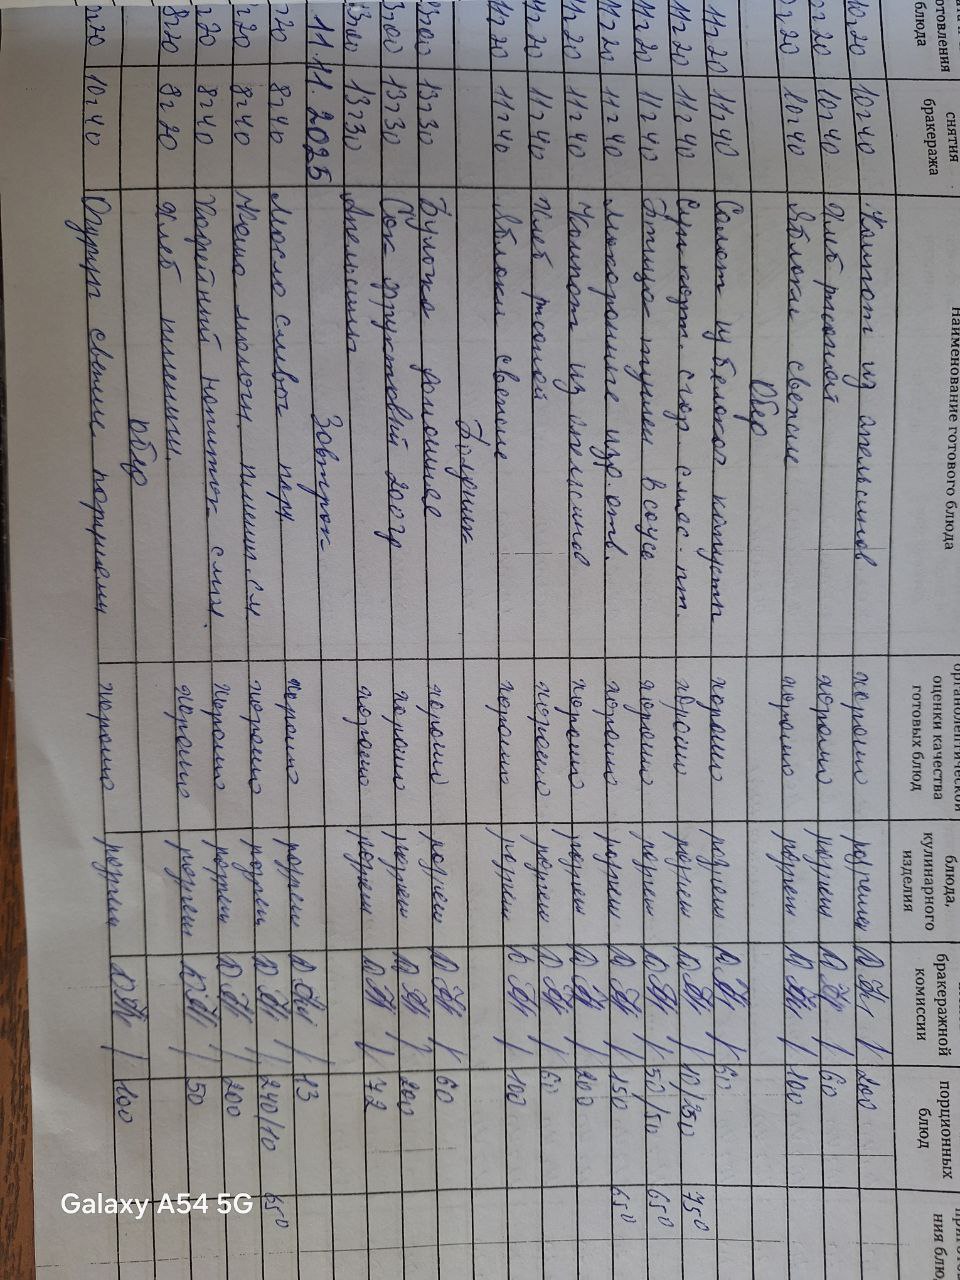 готовления блюда | снятия бракеража | наименование готового блюда | органолептической оценки качества готовых блюд | блюда, кулинарного изделия | бракеражной комиссии | порционных блюд | ния блю
10г20 10г40 Компот из апельсинов хорошо разрешен 200
10г40 Хлеб ржаной хорошо разрешен 60
10г40 Яблоки свежие хорошо разрешен 100
Обед
11г20 11г40 Салат из белокоч капусты хорошо разрешен 60
11г20 11г40 Суп карт. с гор. с мяс. пт. хорошо разрешен 10/250 750
11г20 11г40 Птица тушен в соусе хорошо разрешен 50/50 650
11г20 11г40 Макаронные изд. отв. хорошо разрешен 150 650
11г20 11г40 Компот из апельсинов хорошо разрешен 200
11г40 Хлеб ржаной хорошо разрешен 60
11г20 11г40 Яблоки свежие хорошо разрешен 100
Полдник
13г30 Булочка хорошо разрешен 60
13г30 Сок фруктовый 200гр хорошо разрешен 200
13г30 Апельсины хорошо разрешен 72
11.11.2025 Завтрак
8г40 Масло сливоч хорошо разрешен 13
8г40 Каша молочн. пшенич. с м хорошо разрешен 240/10 650
8г40 Кофейный напиток с мол. хорошо разрешен 200
8г20 8г20 Хлеб пшеничн. хорошо разрешен 50
обед
10г40 Огурцы свежие порциями хорошо разрешен 100
Galaxy A54 5G